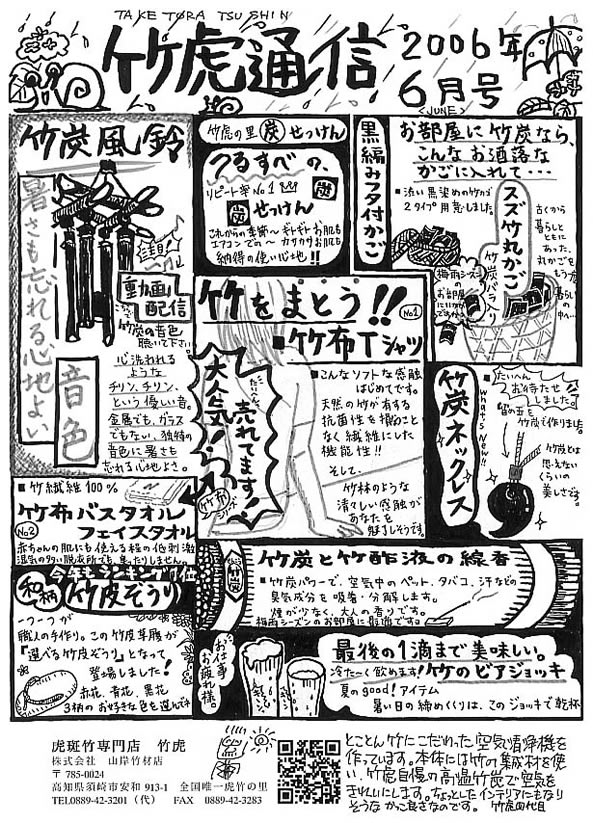 TAKE TORA TSU SHIN
竹虎通信
2006年
6月号
〈JUNE〉
竹炭風鈴
暑さも忘れる心地よい
音色
動画
配信
竹炭の音色
聴いて下さい。
心洗われる
ような
チリン、チリン、
という優しい音。
金属でも、ガラス
でもない、独特の
音色に暑さも
忘れる心地よさ。
竹虎の里 炭 せっけん
つるすべの、
リピート率No1
炭
炭 せっけん
これからの季節〜ギトギトお肌も
エアコンでの〜カサカサお肌も
納得の使い心地!!
黒編みフタ付かご
お部屋に竹炭なら、
こんなお洒落な
かごに入れて・・・
■渋い黒染めの竹かご
2タイプ用意しました。
梅雨シーズン
のお部屋に
スズ竹丸かご
竹炭バラ入り
古くから
暮らしと
ともに
あった、
丸かごを
もう一度
暮らし
の中へ…
竹をまとう!!
No1
■竹布Tシャツ
たいへん
売れてます!
大人気!
竹布
■こんなソフトな感触
はじめてです。
天然の竹が有する
抗菌性を損ねこと
なく繊維にした
機能性!!
そして、
竹林のような
清々しい感触が
あなたを
魅了しそうです。
竹炭ネックレス
■たいへん
お待たせ
しました。
What's New!!
留め玉を
竹炭で作りました。
竹炭とは
思えない
くらいの
美しさです。
■竹繊維100%
竹布バスタオル
No2
フェイスタオル
赤ちゃんの肌にも使える程の低刺激
湿気の多い脱衣所でも、まったりしません。
和柄 竹皮ぞうり
職人の手作り。この竹皮草履が
『選べる竹皮ぞうり』となって
登場しました!
赤花、青花、黒花
3柄のお好きな色を選んでネ
竹炭と竹酢液の線香
■竹炭パワーで、空気中のペット、タバコ、汗などの
臭気成分を吸着・分解します。
煙が少なく、大人の香りです。
梅雨シーズンのお部屋に最適です。
お仕事
お疲れ様。
最後の1滴まで美味しい。
冷たーく飲めます!竹のビアジョッキ
夏のgood!アイテム
暑い日の締めくくりは、このジョッキで乾杯
虎斑竹専門店 竹虎
株式会社 山岸竹材店
〒785-0024
高知県須崎市安和913-1 全国唯一虎竹の里
TEL0889-42-3201(代) FAX 0889-42-3283
とことん竹にこだわった空気清浄機を
作っています。本体には竹の集成材を使
い、竹虎自慢の高温竹炭で空気を
きれいにします。ちょっとしたインテリアにもなり
そうなかっこ良さなのです。 竹虎四代目